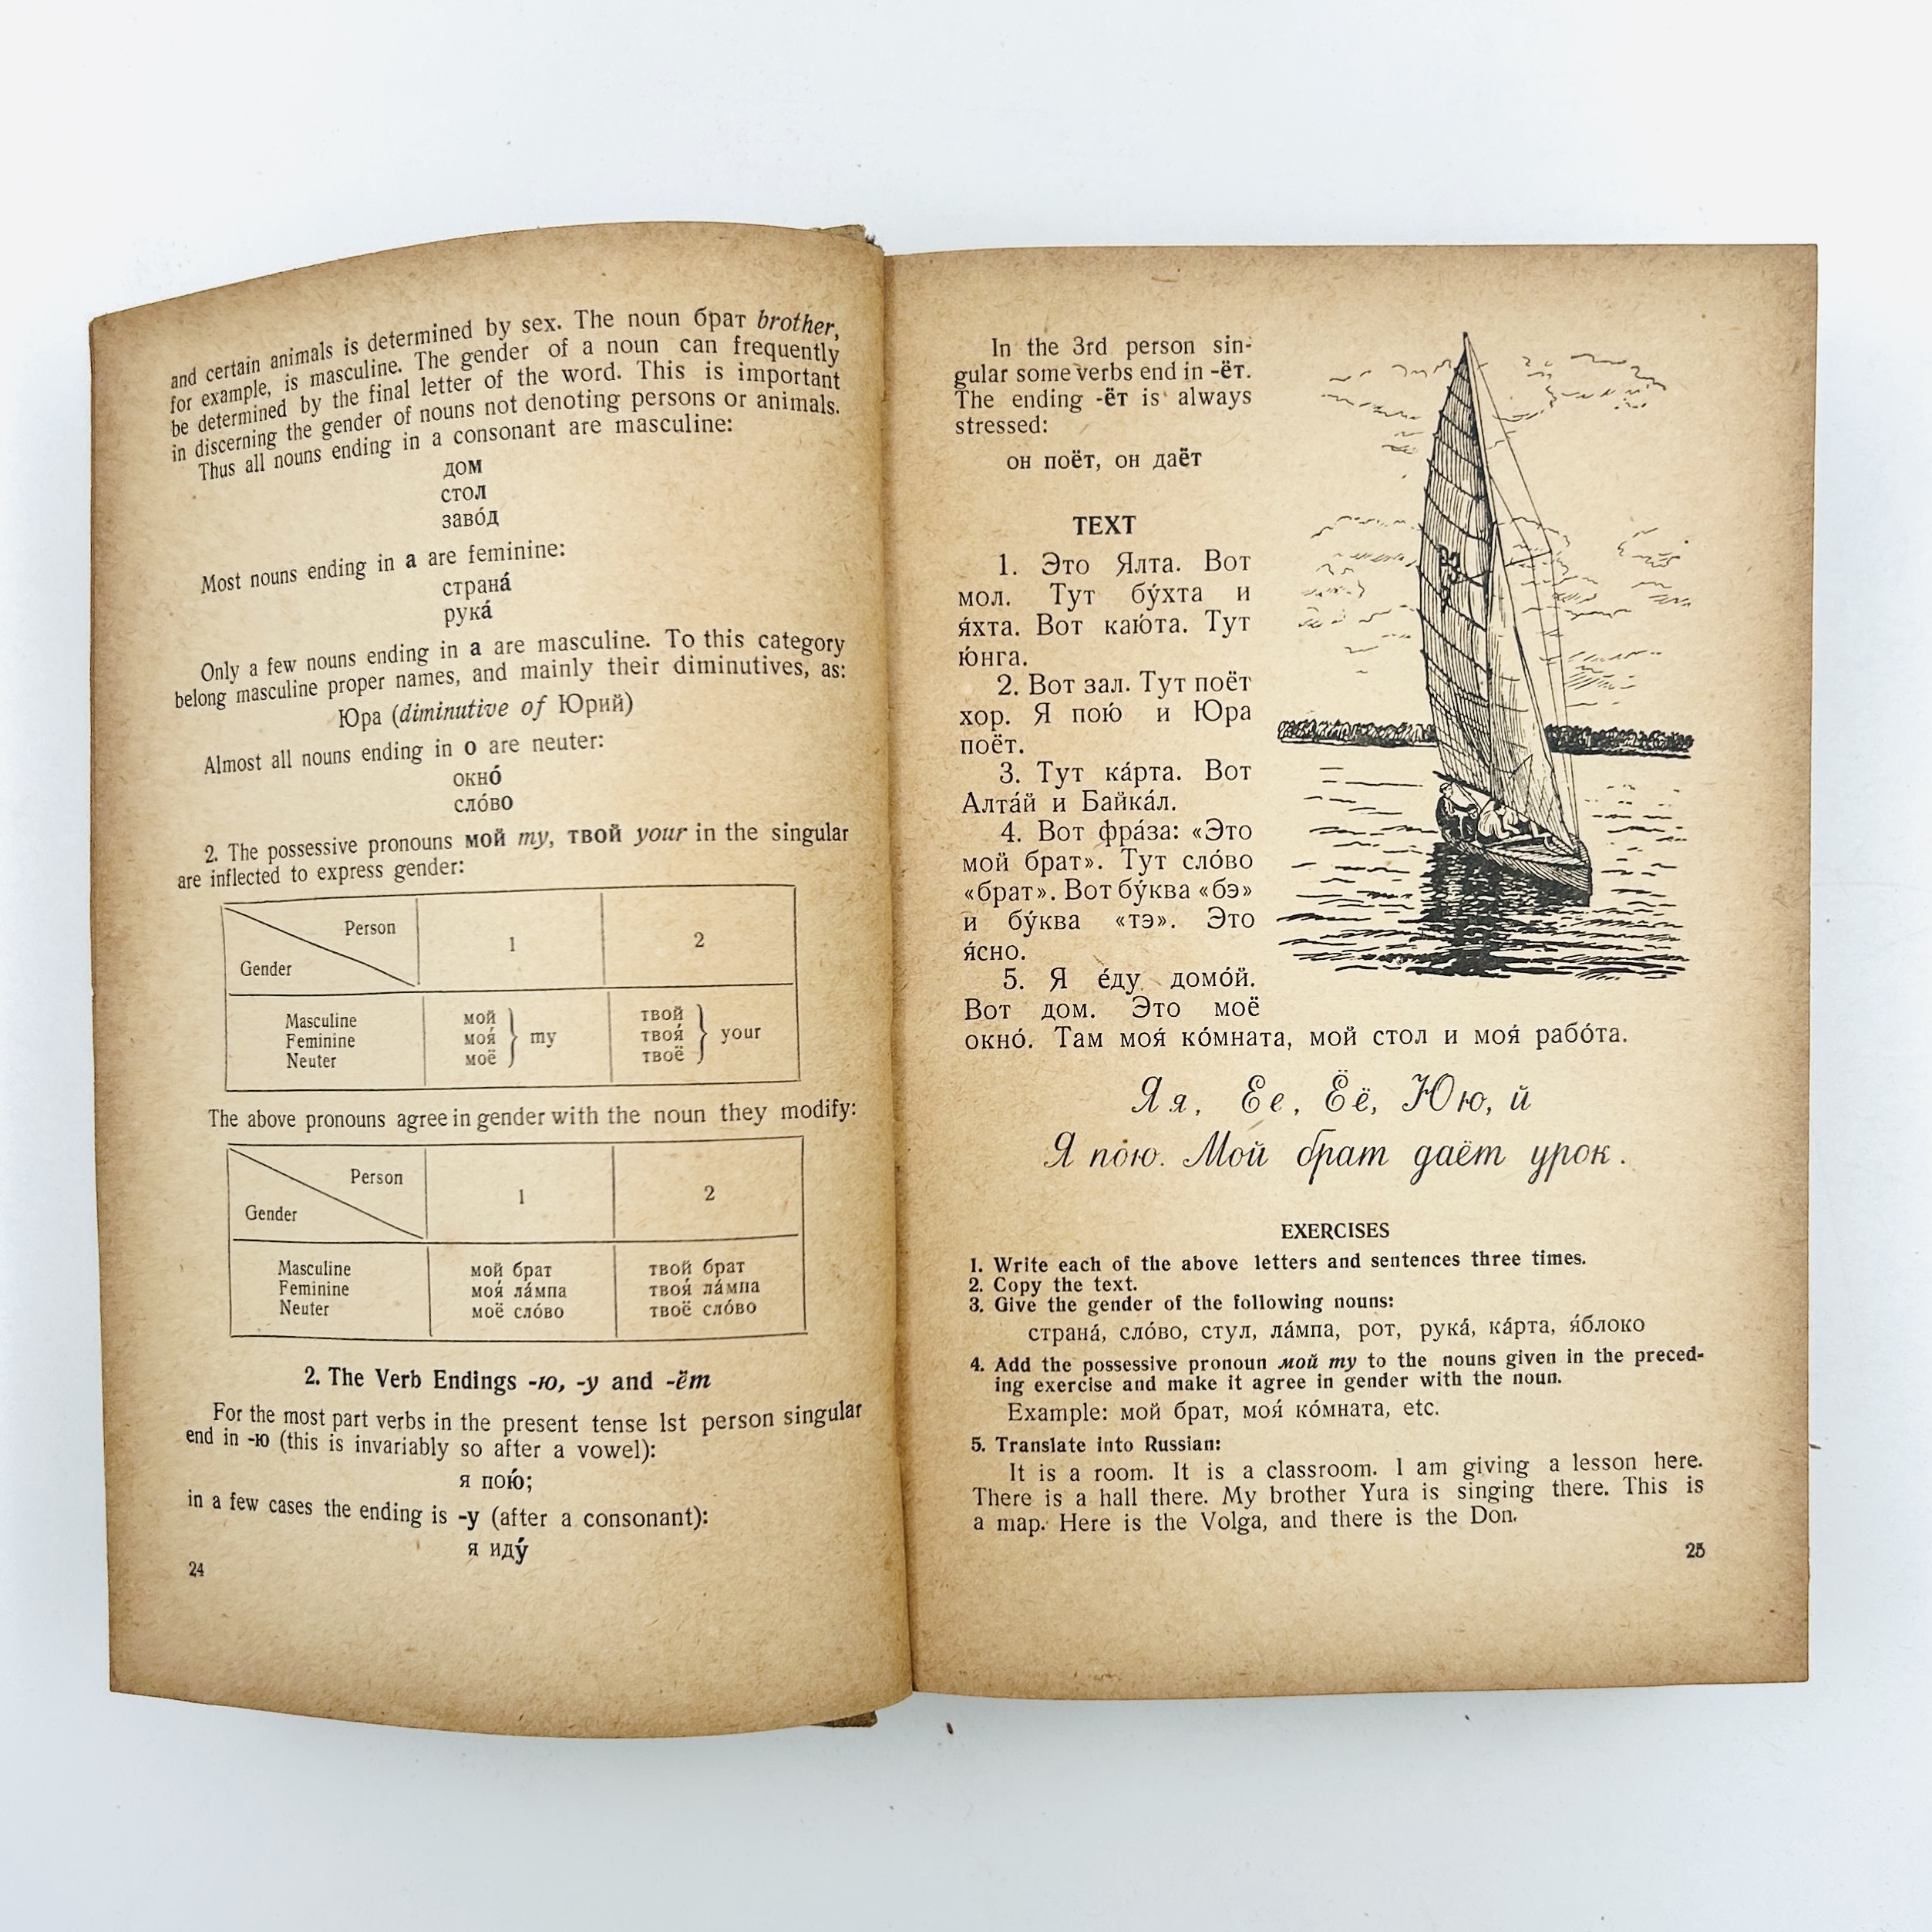 and certain animals is determined by sex. The noun брат brother,
for example, is masculine. The gender of a noun can frequently
be determined by the final letter of the word. This is important
in discerning the gender of nouns not denoting persons or animals.
Thus all nouns ending in a consonant are masculine:
дом
стол
заво́д
Most nouns ending in а are feminine:
страна́
рука́
Only a few nouns ending in а are masculine. To this category
belong masculine proper names, and mainly their diminutives, as:
Юра (diminutive of Юрий)
Almost all nouns ending in о are neuter:
окно́
сло́во
2. The possessive pronouns мой my, твой your in the singular
are inflected to express gender:
Person
Gender
1
2
Masculine
Feminine
Neuter
мой
моя́
моё
my
твой
твоя́
твоё
your
The above pronouns agree in gender with the noun they modify:
Person
Gender
1
2
Masculine мой брат твой брат
Feminine моя́ ла́мпа твоя́ ла́мпа
Neuter моё сло́во твоё сло́во
2. The Verb Endings -ю, -у and -ёт
For the most part verbs in the present tense 1st person singular
end in -ю (this is invariably so after a vowel):
я пою́;
in a few cases the ending is -у (after a consonant):
я иду́
24
In the 3rd person sin-
gular some verbs end in -ёт.
The ending -ёт is always
stressed:
он поёт, он даёт
TEXT
1. Это Ялта. Вот
мол. Тут бу́хта и
я́хта. Вот каю́та. Тут
ю́нга.
2. Вот зал. Тут поёт
хор. Я пою́ и Юра
поёт.
3. Тут ка́рта. Вот
Алта́й и Байка́л.
4. Вот фра́за: «Это
мой брат». Тут сло́во
«брат». Вот бу́ква «бэ»
и бу́ква «тэ». Это
я́сно.
5. Я е́ду домо́й.
Вот дом. Это моё
окно́. Там моя́ ко́мната, мой стол и моя́ рабо́та.
Я я, Е е, Ё ё, Ю ю, й
Я пою. Мой брат даёт урок.
EXERCISES
1. Write each of the above letters and sentences three times.
2. Copy the text.
3. Give the gender of the following nouns:
страна́, сло́во, стул, ла́мпа, рот, рука́, ка́рта, я́блоко
4. Add the possessive pronoun мой my to the nouns given in the preced-
ing exercise and make it agree in gender with the noun.
Example: мой брат, моя́ ко́мната, etc.
5. Translate into Russian:
It is a room. It is a classroom. I am giving a lesson here.
There is a hall there. My brother Yura is singing there. This is
a map. Here is the Volga, and there is the Don.
25